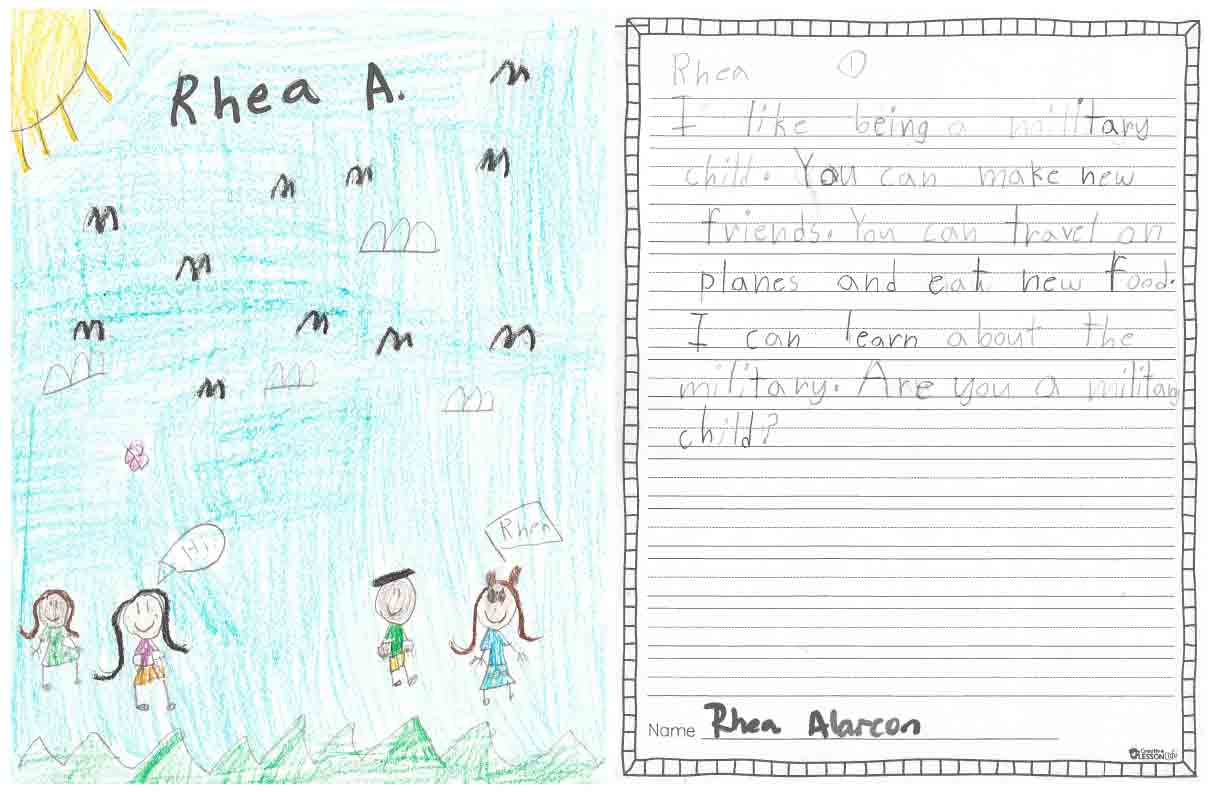 Rhea A.
Hi
Rhea
Rhea 1
I like being a military
child. You can make new
friends. You can travel on
planes and eat new food.
I can learn about the
military. Are you a military
child?
Name Rhea Alarcon
Creative
LESSON Cafe